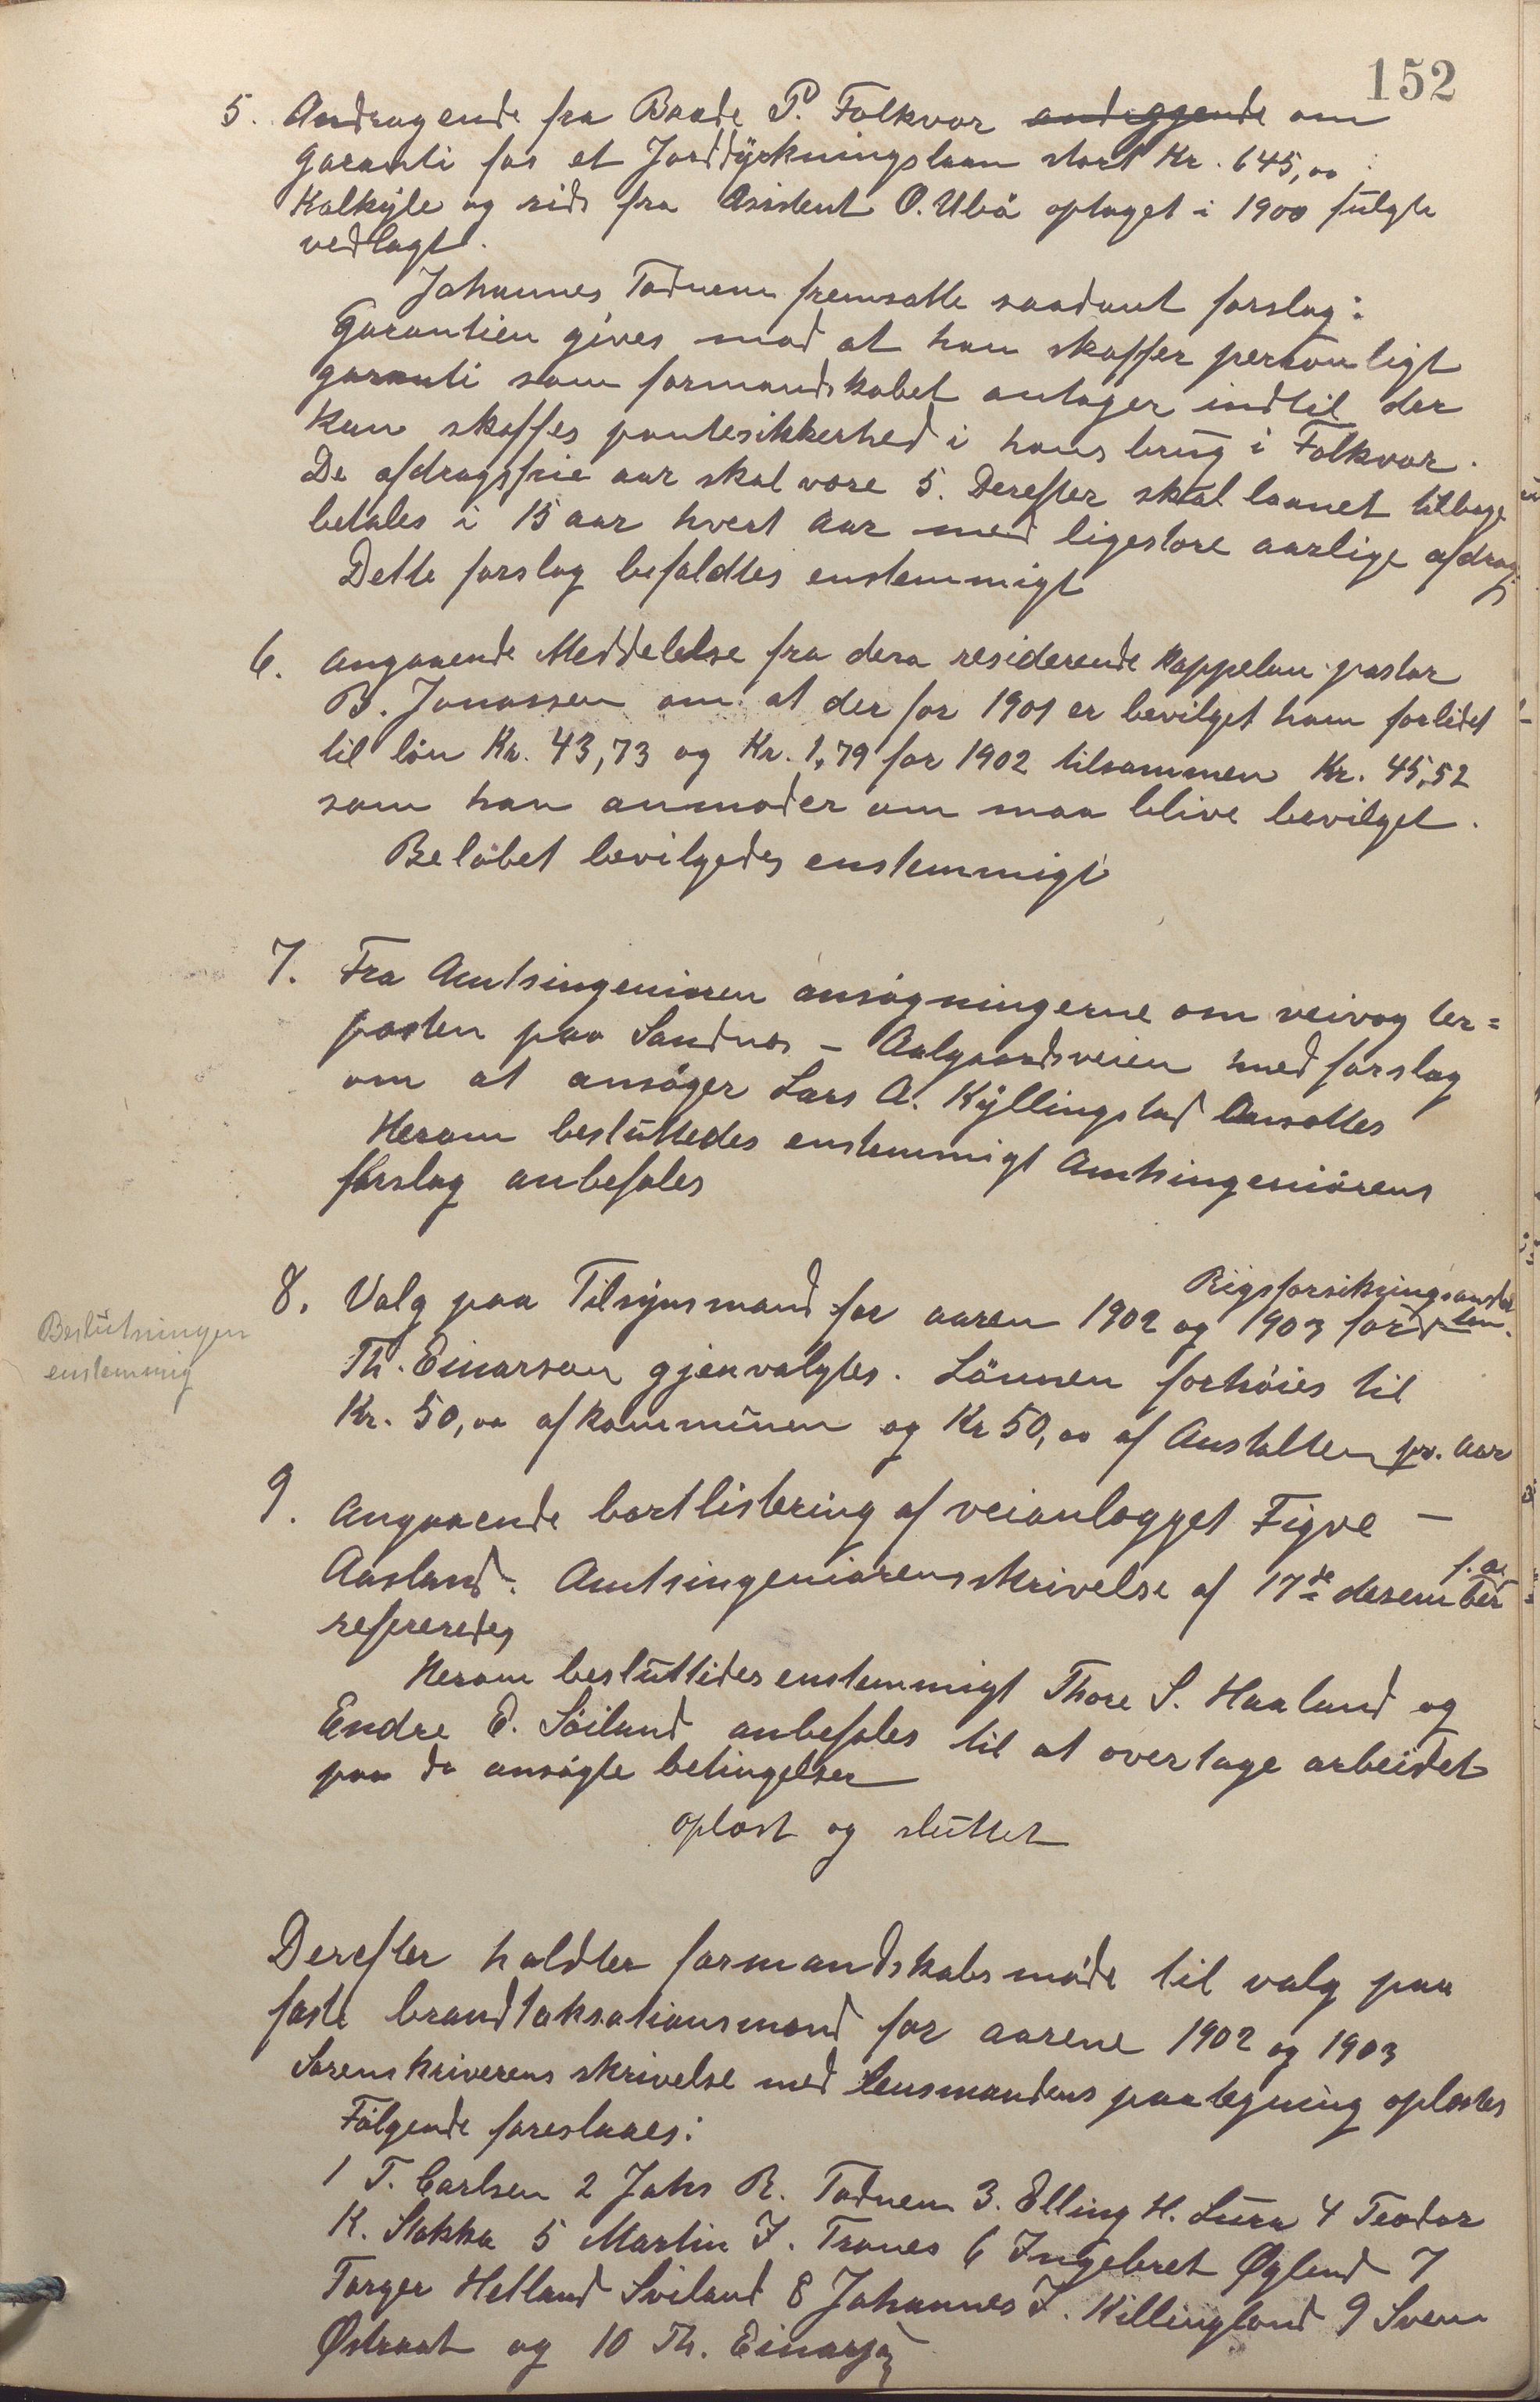 152
5. Andragende fra Baade P. Folkvor andeggende om
Garanti for et Jorddyrkningslaan stort Kr. 645,00
Kalkyle og rids fra Asistent O. Ubö optaget i 1900 fulgte
vedlagt.
Johannes Tadnem fremsatte saadant forslag:
Garantien gives mod at han skaffer personligt
garanti som formandskabet antager indtil der
kan skaffes pantesikkerhed i hans brug i Folkvor.
De afdragsfrie aar skal være 5. Derefter skal laanet tilbage
betales i 15 aar hvert aar med ligestore aarlige afdrag
Dette forslag befaldtes enstemmigt
6. angaaende Meddelelse fra dera residerende kappelan pastor
B. Jonassen om at der for 1901 er bevilget ham forlidet
til lön Kr. 43,73 og Kr. 1,79 for 1902 tilsammen Kr. 45,52
som han anmoder om maa blive bevilget.
Belöbet bevilgedes enstemmigt
7. Fra Amtsingeniøren ansögningerne om veivogter=
posten paa Sandnæs - Aalgaardsveien med forslag
om at ansöger Lars A. Kyllingstad Ansættes
Herom besluttedes enstemmigt Amtsingeniörens
forslag anbefales
Rigsforsikringsanstal
8. Valg paa Tilsynsmand for aaren 1902 og 1903 for ten.
Beslutningen
enstemmig
Th. Einarson gjenvalgtes. Lönnen forhöies til
Kr. 50,00 af kommunen og Kr 50,00 af Anstalten pr. aar
9. Angaaende bortlistering af veianlægget Figve -
Aasland. Amtsingeniörens skrivelse af 17de desember f. a.
refereredes
Herom besluttides enstemmigt Thore S. Haaland og
Endre E. Söiland anbefales til at overtage arbeidet
paa de ansögte betingelser
oplæst og sluttet
Derefter holdtes formandskabsmöde til valg paa
faste brandtaksationsmænd for aarene 1902 og 1903
Sorenskriverens skrivelse med lensmandens paategning oplæstes
Fölgende foreslaaes:
1 T. Carlsen 2 Johs R. Tadnem 3. Elling H. Lura 4 Teodor
K. Stokka 5 Martin J. Tranes 6 Ingebret Øglend 7
Torger Hetland Sviland 8 Johannes J. Killingland 9 Sven
Østraat og 10 Th. Einarson